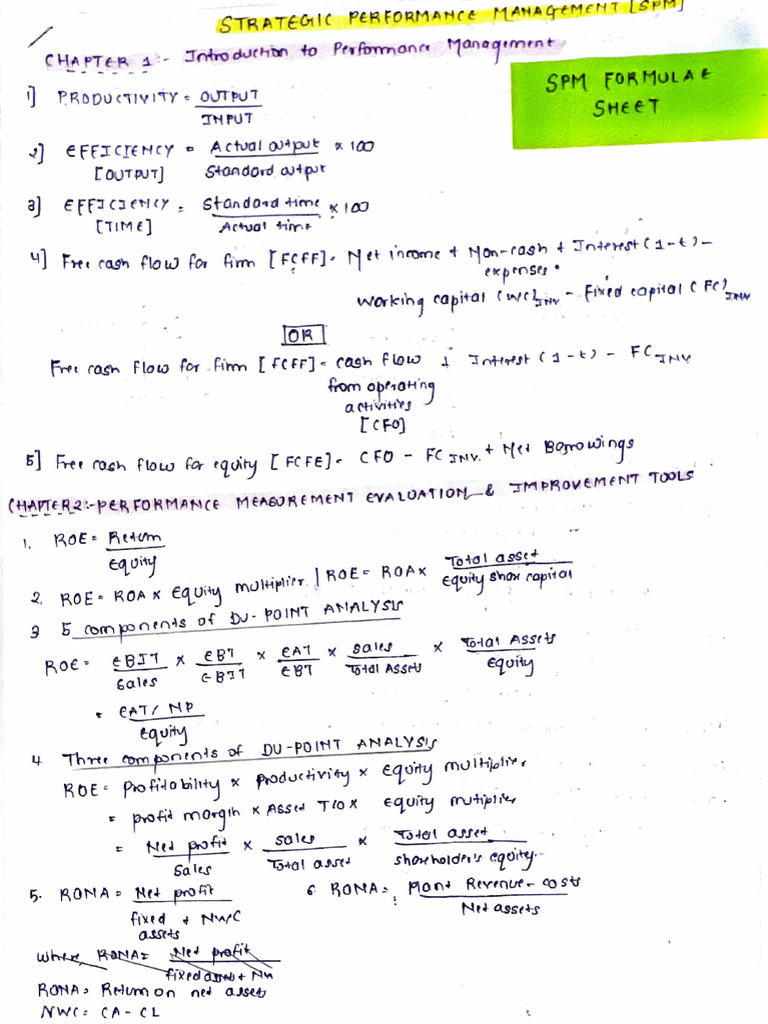 STRATEGIC PERFORMANCE MANAGEMENT [SPM]
CHAPTER 1:- Introduction to Performance Management
SPM FORMULAE
SHEET
1] PRODUCTIVITY = OUTPUT
INPUT
2] EFFICIENCY = Actual output × 100
[OUTPUT] Standard output
3] EFFICIENCY = Standard time × 100
[TIME] Actual time
4] Free cash flow for firm [FCFF] = Net income + Non-cash + Interest (1-t) -
expenses
Working capital (WC)INV - Fixed capital (FC)INV
[OR]
Free cash flow for firm [FCFF] = cash flow + Interest (1-t) - FC INV
from operating
activities
[CFO]
5] Free cash flow for equity [FCFE] = CFO - FC INV. + Net Borrowings
CHAPTER 2:- PERFORMANCE MEASUREMENT EVALUATION & IMPROVEMENT TOOLS
1. ROE = Return
Equity
2. ROE = ROA × Equity multiplier | ROE = ROA × Total asset
Equity share capital
3 5 components of DU-POINT ANALYSIS
ROE = EBIT × EBT × EAT × Sales × Total Assets
Sales EBIT EBT Total Assets Equity
= EAT / NP
Equity
4 Three components of DU-POINT ANALYSIS
ROE = profitability × productivity × Equity multiplier
= profit margin × Asset T/O × Equity mutiplier
= Net profit × sales × Total asset
Sales Total asset shareholder's equity.
5. RONA = Net profit 6. RONA = Plant Revenue - costs
fixed + NWC Net assets
assets
where, RONA = Net profit
fixed asset + Nw
RONA = Return on net assets
NWC = CA - CL